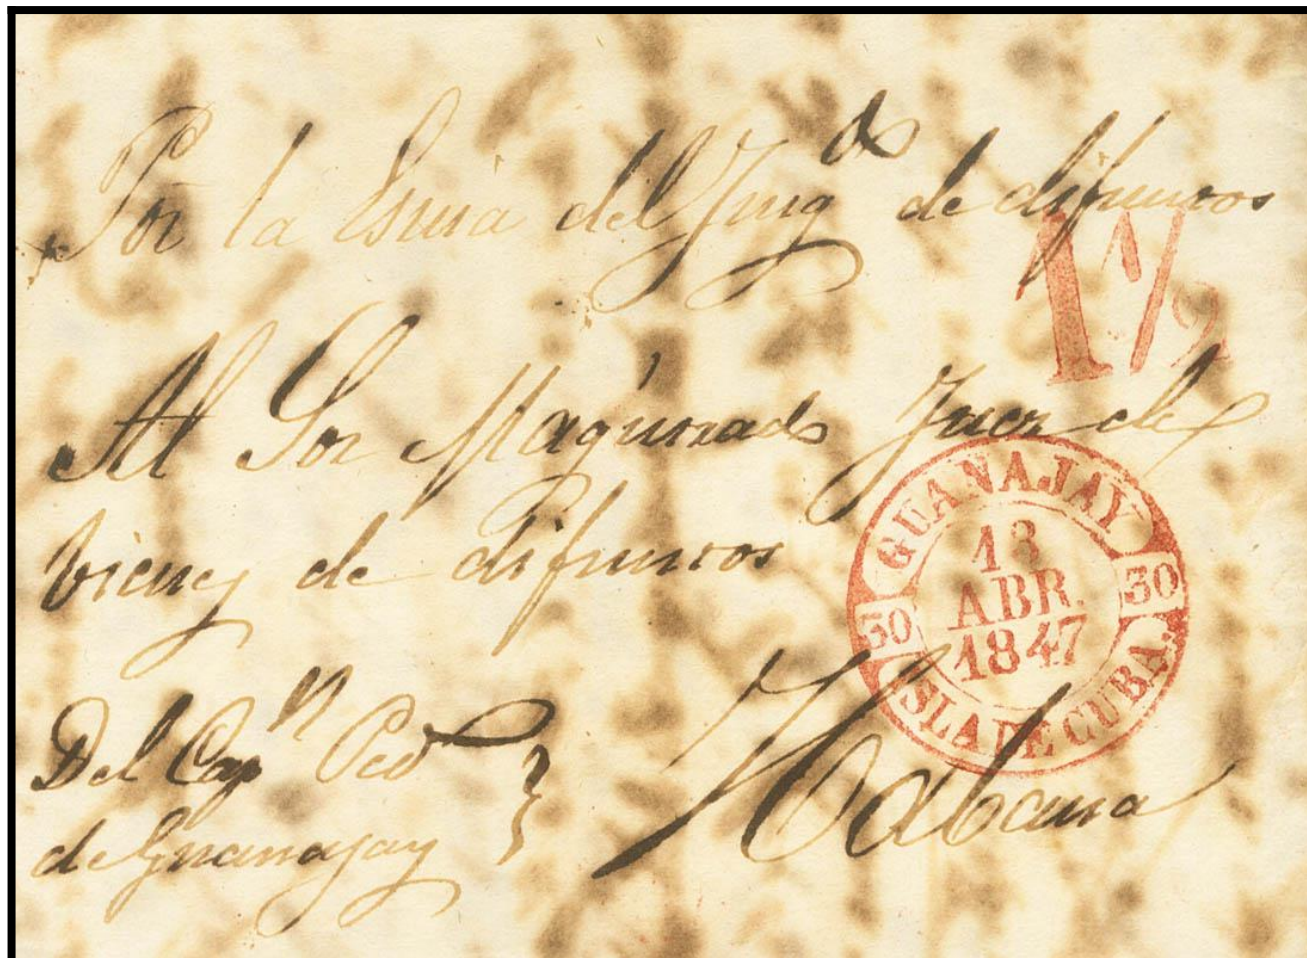 Por la Esnia del Juzg.do de difuntos
1 1/2
Al Sor Magistrado Juez de
bienes de difuntos
GUANAJAY
13
ABR.
1847
30 30
ISLA DE CUBA.
Del Capn Ped
de Guanajay
Habana